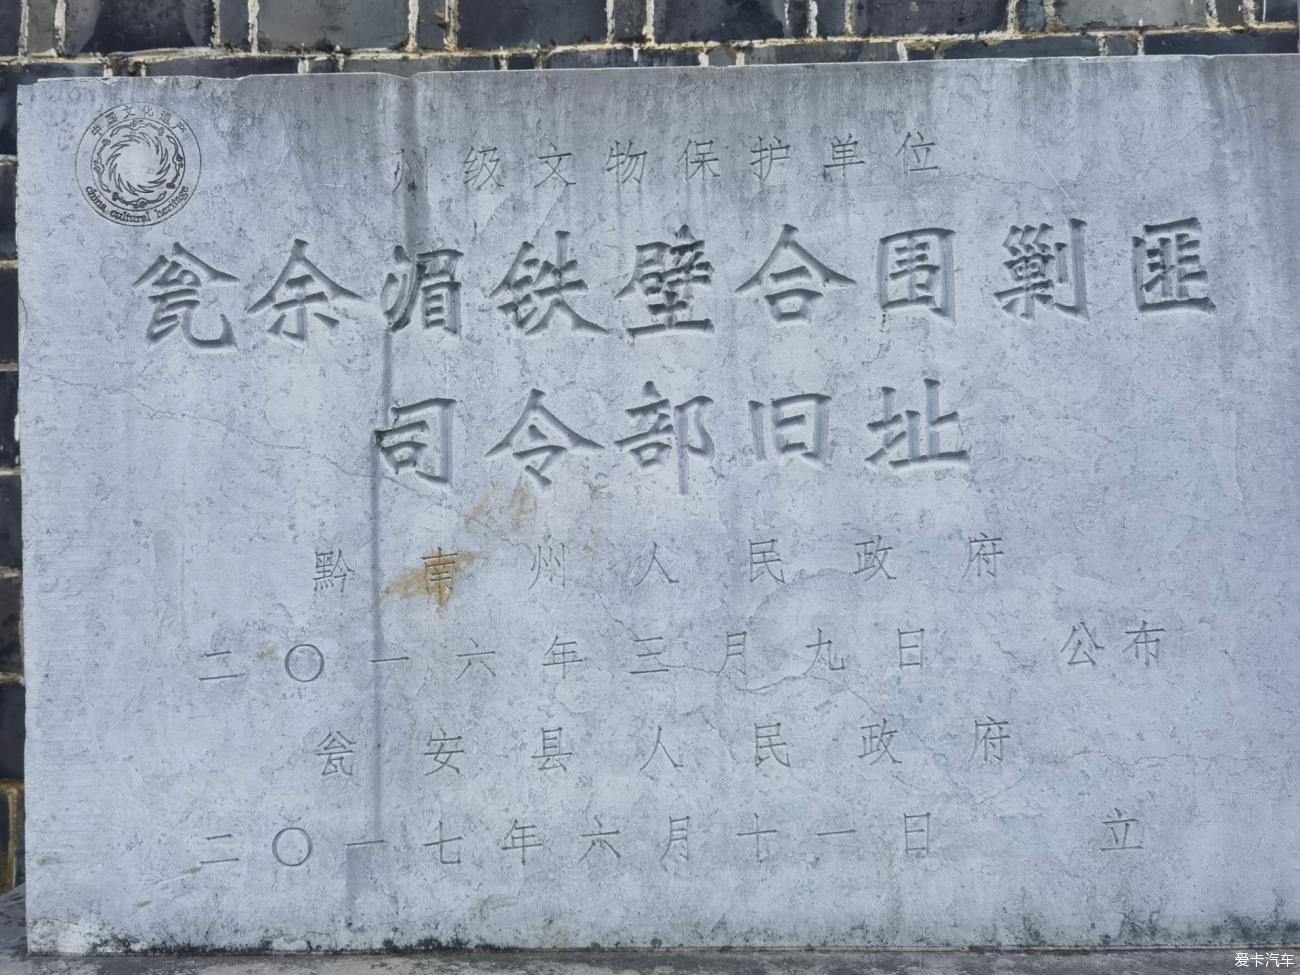 中国文化遗产
china cultural heritage
州级文物保护单位
瓮余湄铁壁合围剿匪
司令部旧址
黔南州人民政府
二〇一六年三月九日 公布
瓮安县人民政府
二〇一七年六月十一日 立
爱卡汽车